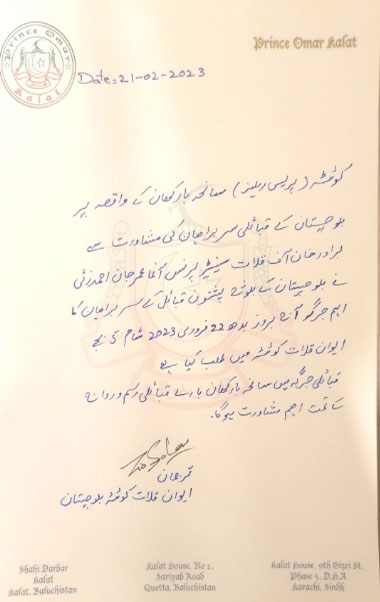 Prince Omar
Kalat
Prince Omar Kalat
Date=21-02-2023
کوئٹہ (پریس ریلیز) سانحہ بارکھان کے واقعہ پر
بلوچستان کے قبائلی سربراہان کی مشاورت سے
برادر خان آف قلات سینیٹر پرنس آغا عمر جان احمد زئی
نے بلوچستان کے بلوچ پشتون قبائل کے سربراہان کا
اہم جرگہ آج بروز بدھ 22 فروری 2023 شام 5 بجے
ایوان قلات کوئٹہ میں طلب کیا ہے
قبائلی جرگہ میں سانحہ بارکھان بارے قبائلی رسم و رواج
کے تحت اہم مشاورت ہوگا۔
ترجمان
ایوان قلات کوئٹہ بلوچستان
Shahi Darbar
Kalat
Kalat, Baluchistan
Kalat House, No 1,
Sariyab Road
Quetta, Baluchistan
Kalat House, 9th Gizri St,
Phase 5, D.H.A
Karachi, Sindh